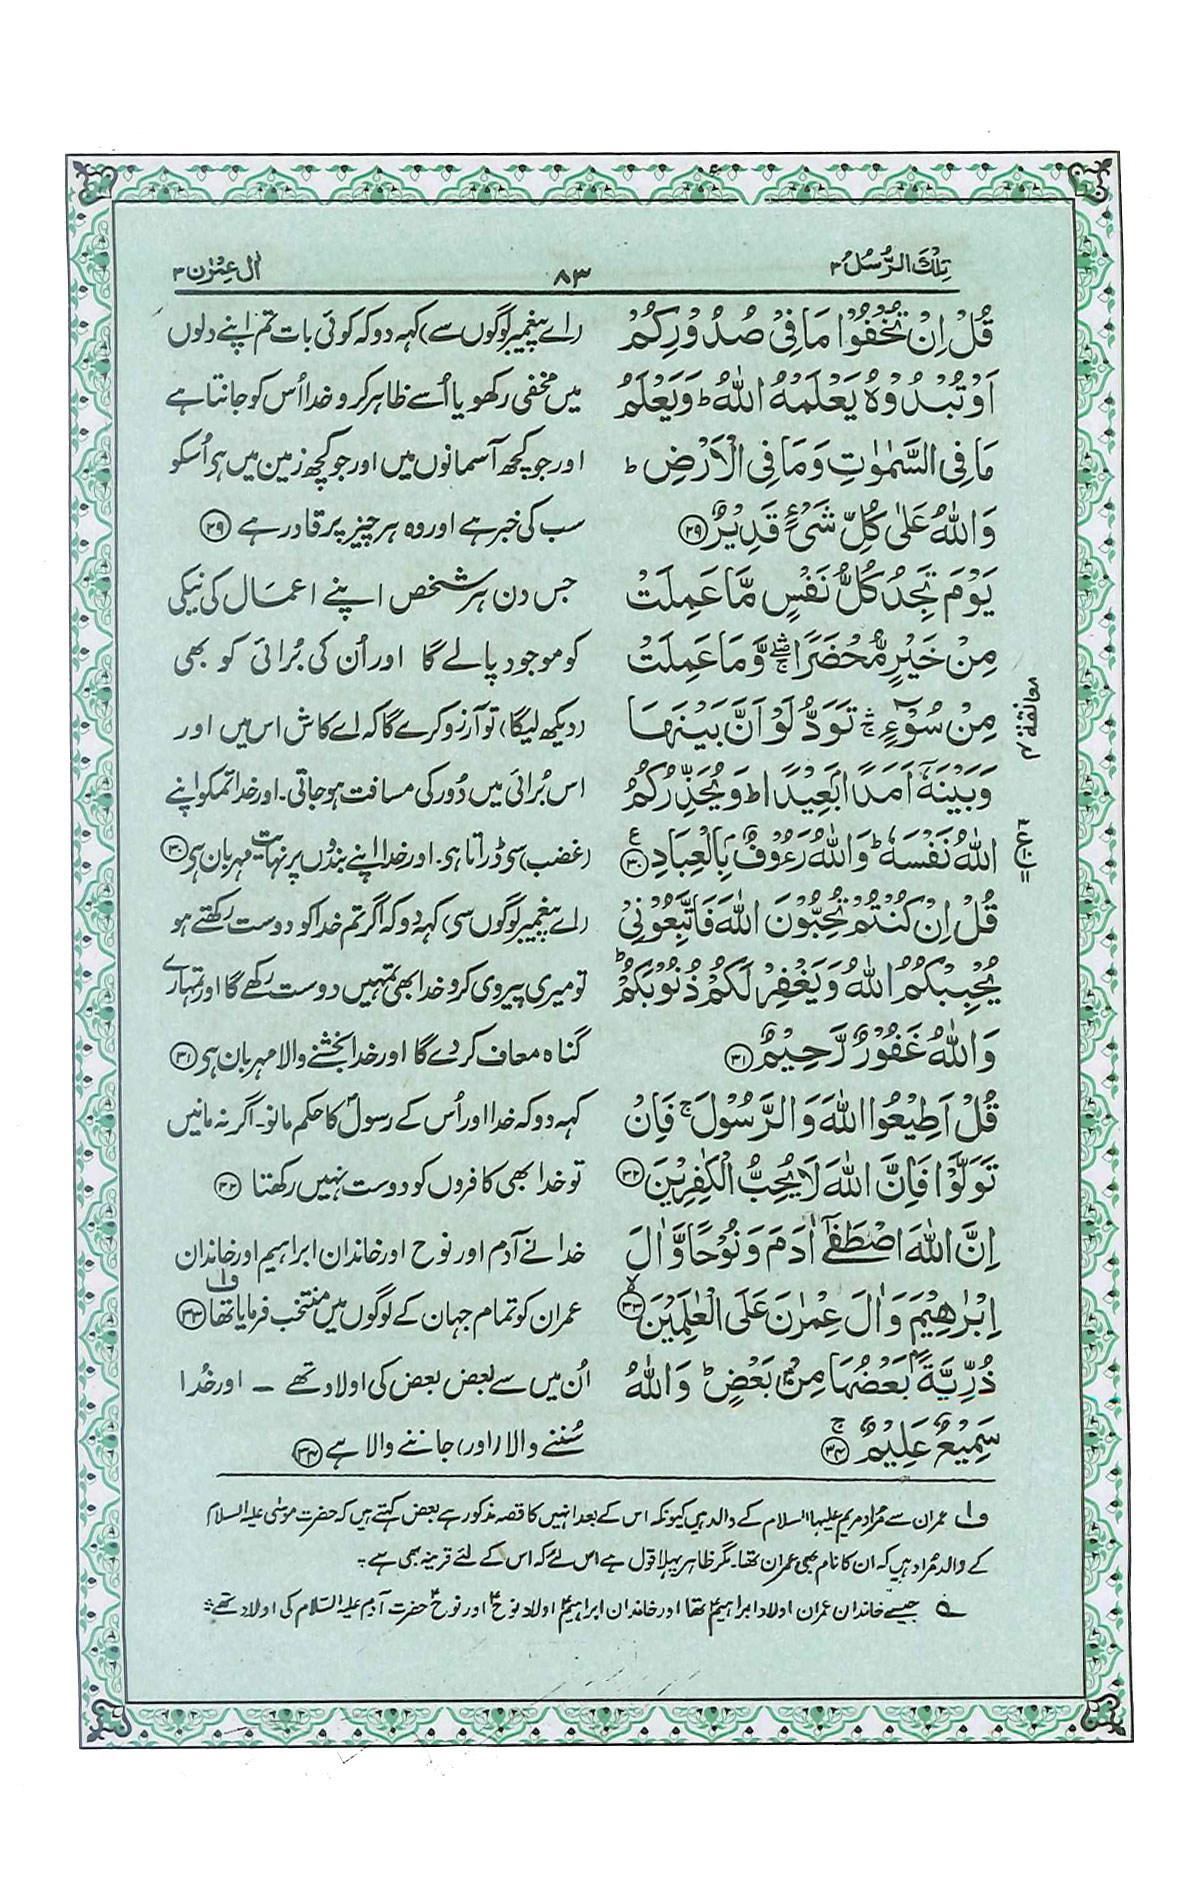 تِلْكَ الرُّسُلُ ٣
٨٣
اٰل عِمْرٰن ٣
قُلْ اِنْ تُخْفُوْا مَا فِیْ صُدُوْرِكُمْ
اَوْ تُبْدُوْهُ یَعْلَمْهُ اللّٰهُ ؕ وَیَعْلَمُ
مَا فِی السَّمٰوٰتِ وَمَا فِی الْاَرْضِ ؕ
وَاللّٰهُ عَلٰی كُلِّ شَیْءٍ قَدِیْرٌ ﴿٢٩﴾
یَوْمَ تَجِدُ كُلُّ نَفْسٍ مَّا عَمِلَتْ
مِنْ خَیْرٍ مُّحْضَرًا ۖۛۚ وَّمَا عَمِلَتْ
مِنْ سُوْٓءٍ ۛۚ تَوَدُّ لَوْ اَنَّ بَیْنَهَا
وَبَیْنَهٗۤ اَمَدًۢا بَعِیْدًا ؕ وَیُحَذِّرُكُمُ
اللّٰهُ نَفْسَهٗ ؕ وَاللّٰهُ رَءُوْفٌۢ بِالْعِبَادِ ﴿٣٠﴾ ع
قُلْ اِنْ كُنْتُمْ تُحِبُّوْنَ اللّٰهَ فَاتَّبِعُوْنِیْ
یُحْبِبْكُمُ اللّٰهُ وَیَغْفِرْ لَكُمْ ذُنُوْبَكُمْ ؕ
وَاللّٰهُ غَفُوْرٌ رَّحِیْمٌ ﴿٣١﴾
قُلْ اَطِیْعُوا اللّٰهَ وَالرَّسُوْلَ ۚ فَاِنْ
تَوَلَّوْا فَاِنَّ اللّٰهَ لَا یُحِبُّ الْكٰفِرِیْنَ ﴿٣٢﴾
اِنَّ اللّٰهَ اصْطَفٰۤی اٰدَمَ وَنُوْحًا وَّاٰلَ
اِبْرٰهِیْمَ وَاٰلَ عِمْرٰنَ عَلَی الْعٰلَمِیْنَ ۙ﴿٣٣﴾
ذُرِّیَّةًۢ بَعْضُهَا مِنْۢ بَعْضٍ ؕ وَاللّٰهُ
سَمِیْعٌ عَلِیْمٌ ۚ﴿٣٤﴾
(اے پیغمبر لوگوں سے) کہہ دو کہ کوئی بات تم اپنے دلوں
میں مخفی رکھو یا اُسے ظاہر کرو خدا اُس کو جانتا ہے
اور جو کچھ آسمانوں میں اور جو کچھ زمین میں ہی اُسکو
سب کی خبر ہے اور وہ ہر چیز پر قادر ہے ﴿٢٩﴾
جس دن ہر شخص اپنے اعمال کی نیکی
کو موجود پالے گا اور اُن کی بُرائی کو بھی
(دیکھ لیگا) تو آرزو کرے گا کہ اے کاش اس میں اور
اس بُرائی میں دُور کی مسافت ہو جاتی۔ اور خدا تمکو اپنے
(غضب) سی ڈراتا ہی۔ اور خدا اپنے بندوں پر نہایت مہربان ہی ﴿٣٠﴾
(اے پیغمبر لوگوں سی) کہہ دو کہ اگر تم خدا کو دوست رکھتے ہو
تو میری پیروی کرو خدا بھی تمہیں دوست رکھے گا اور تمہارے
گناہ معاف کر دے گا اور خدا بخشنے والا مہربان ہی ﴿٣١﴾
کہہ دو کہ خدا اور اُس کے رسولؐ کا حکم مانو۔ اگر نہ مانیں
تو خدا بھی کافروں کو دوست نہیں رکھتا ﴿٣٢﴾
خدا نے آدم اور نوح اور خاندان ابراہیم اور خاندان
عمران کو تمام جہان کے لوگوں میں منتخب فرمایا تھا ف۱ ﴿٣٣﴾
اُن میں سے بعض بعض کی اولاد تھے ۔ اور خُدا
سُننے والا (اور) جاننے والا ہے ﴿٣٤﴾
معانقة ۳
ف۱ عمران سے مُراد مریم علیہا السلام کے والد ہیں کیونکہ اس کے بعد انہیں کا قصہ مذکور ہے بعض کہتے ہیں کہ حضرت موسٰی علیہ السلام
کے والد مُراد ہیں کہ ان کا نام بھی عمران تھا۔ مگر ظاہر پہلا قول ہے اس لئے کہ اس کے لئے قرینہ بھی ہے ۔
ف۲ جیسے خاندان عمران اولاد ابراہیمؑ تھا اور خاندان ابراہیمؑ اولاد نوحؑ اور نوحؑ حضرت آدم علیہ السّلام کی اولاد تھے